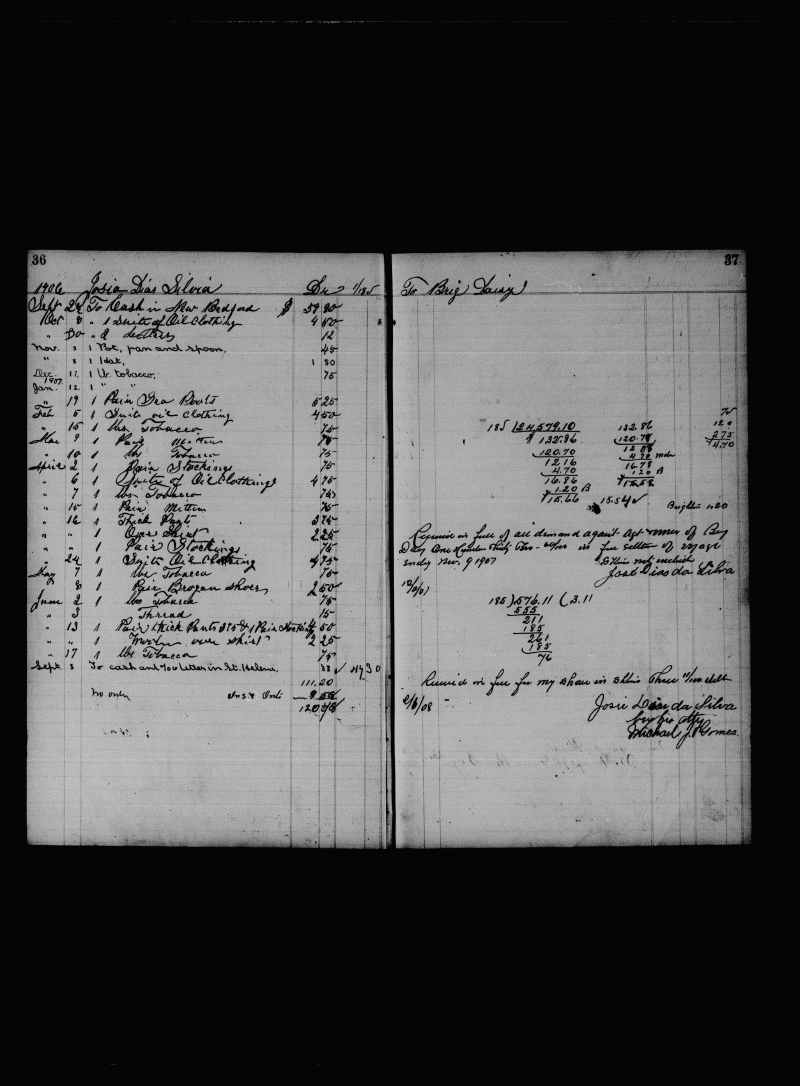 36
1906 Josia Dias Silvia Dr 1/185
Sept 24 To Cash in New Bedford $ 59 80
Oct 8 " 1 Suite of Oil Clothing 4 50
" 30 " 2 12
Nov. 1 Pot, pan and spoon, 45
" 8 1 Hat, 1 50
Dec. 17. 1 lb. tobacco, 75
1907.
Jan. 12. 1 " "
" 19 1 Pair Sea Boots 5 25
Feb 5 1 Suite oil Clothing 4 50
" 15 1 lbs Tobacco 75
Mar 9 1 Pair Mitten 75
" 10 1 lbs Tobacco 75
April 2 1 Pair Stockings 75
" 6 1 Suite of Oil Clothing 4 75
" 7 1 lbs Tobacco 75
" 15 1 Pair Mitten 75
" 16 1 Thick Pants 3 75
" " 1 Over Shirt 2 25
" " 1 Pair Stockings 75
" 24 1 Suite Oil Clothing 4 75
May 7 1 lbs Tobacco 75
" 8 1 Pair Brogan Shoes 2 50
June 2 1 lbs Tobacco 75
" 3 Thread 15
" 13 1 Pair thick Pants 3 75 & 1 Pair Stocking 4 50
" " 1 Woolen over shirt 2 25
" 17 1 lbs Tobacco 75
Sept. 8 To cash and letter in St. Helena.
111.20
120
37
To Brig Daisy
185 124,579.10
$ 132.86
120.70
12 16
4.70
16.86
1.20 B
15.66
132.86
120.78
12 08
4.70 mdse
16.78
1 20 B
15.58
15.54
75
1 20
2 75
4.70
Brighton 1.20
Received in full of all demand against Agt owner of Brig
Daisy One Hundred Thirty Two in full settlement of voyage
ending Nov. 9 1907 not included
José Dias da Silva
185 ) 576.11 ( 3.11
555
211
185
261
185
76
Received in full for my share in Three
2/6/08 Josie Dias da Silva
by his atty
Michael J. Gomes